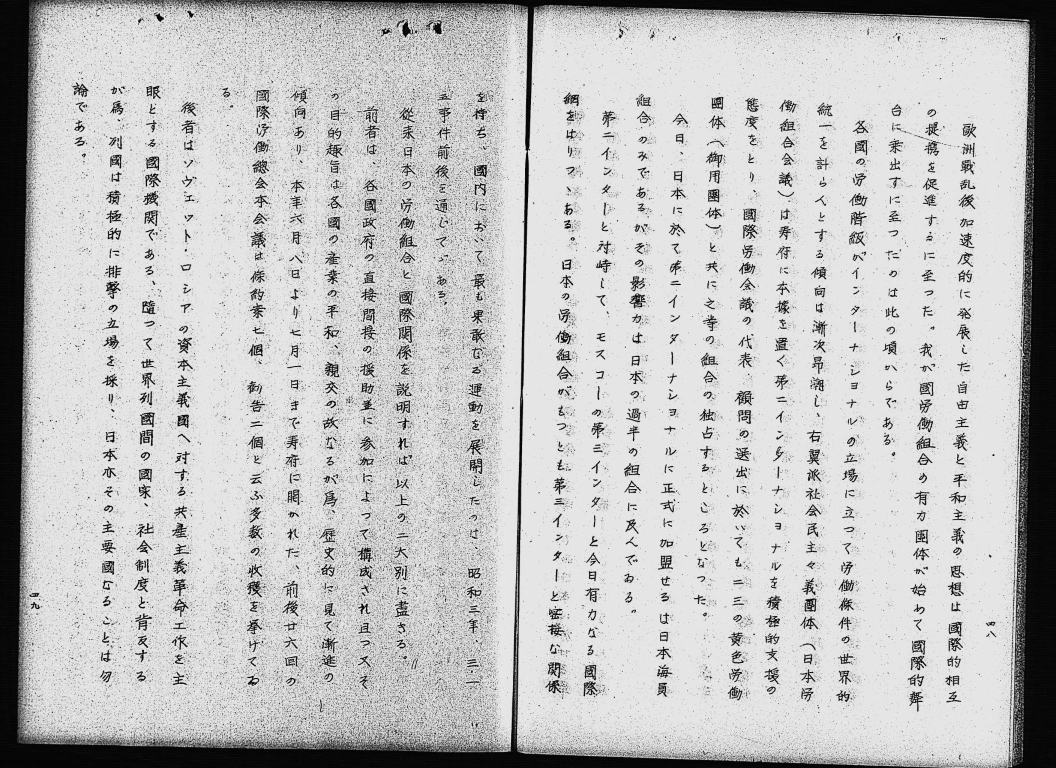 四八
歐洲戰乱後加速度的に発展した自由主義と平和主義の思想は國際的相互
の提携を促進するに至つた。我が國労働組合の有力團体が始めて國際的舞
台に乗出すに至つたのは此の頃からである。
各國の労働階級がインターナショナルの立場に立つて労働條件の世界的
統一を計らんとする傾向は漸次昂潮し、右翼派社会民主々義團体（日本労
働組合会議）は寿府に本據を置く第二インターナショナルを積極的支援の
態度をとり、國際労働会議の代表、顧問の選出に於いても二三の黄色労働
團体（御用團体）と共に之等の組合の独占するところとなつた。
今日、日本に於て第二インターナショナルに正式に加盟せるは日本海員
組合のみであるがその影響力は日本の過半の組合に及んでゐる。
第二インターと対峙して、モスコーの第三インターと今日有力なる國際
網をはりつゝある。日本の労働組合がもつとも第三インターと密接な関係
を持ち、國内において最も果敢なる運動を展開したのは、昭和三年、三一
五事件前後を通じてゞある。
從来日本の労働組合と國際関係を説明すれば以上の二大別に盡きる。
前者は、各國政府の直接間接の援助並に参加によつて構成され且つ又そ
の目的趣旨は各國の産業の平和、親交の故なるが爲、歴史的に見て漸進の
傾向あり、本年六月八日より七月一日まで寿府に開かれた、前後廿六回の
國際労働總会本会議は條約案七個、勧告二個と云ふ多数の收穫を挙げてゐ
る。
後者はソヴェット・ロシアの資本主義國へ対する共産主義革命工作を主
眼とする國際機関である、隨つて世界列國間の國家、社会制度と背反する
が爲、列國は積極的に排撃の立場を採り、日本亦その主要國なることは勿
論である。
四九